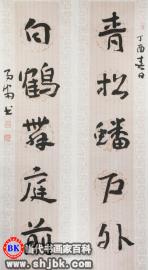 丁酉春日
青松蟠户外
白鶴舞庭前
BK
当代书画家百科
www.shjbk.com